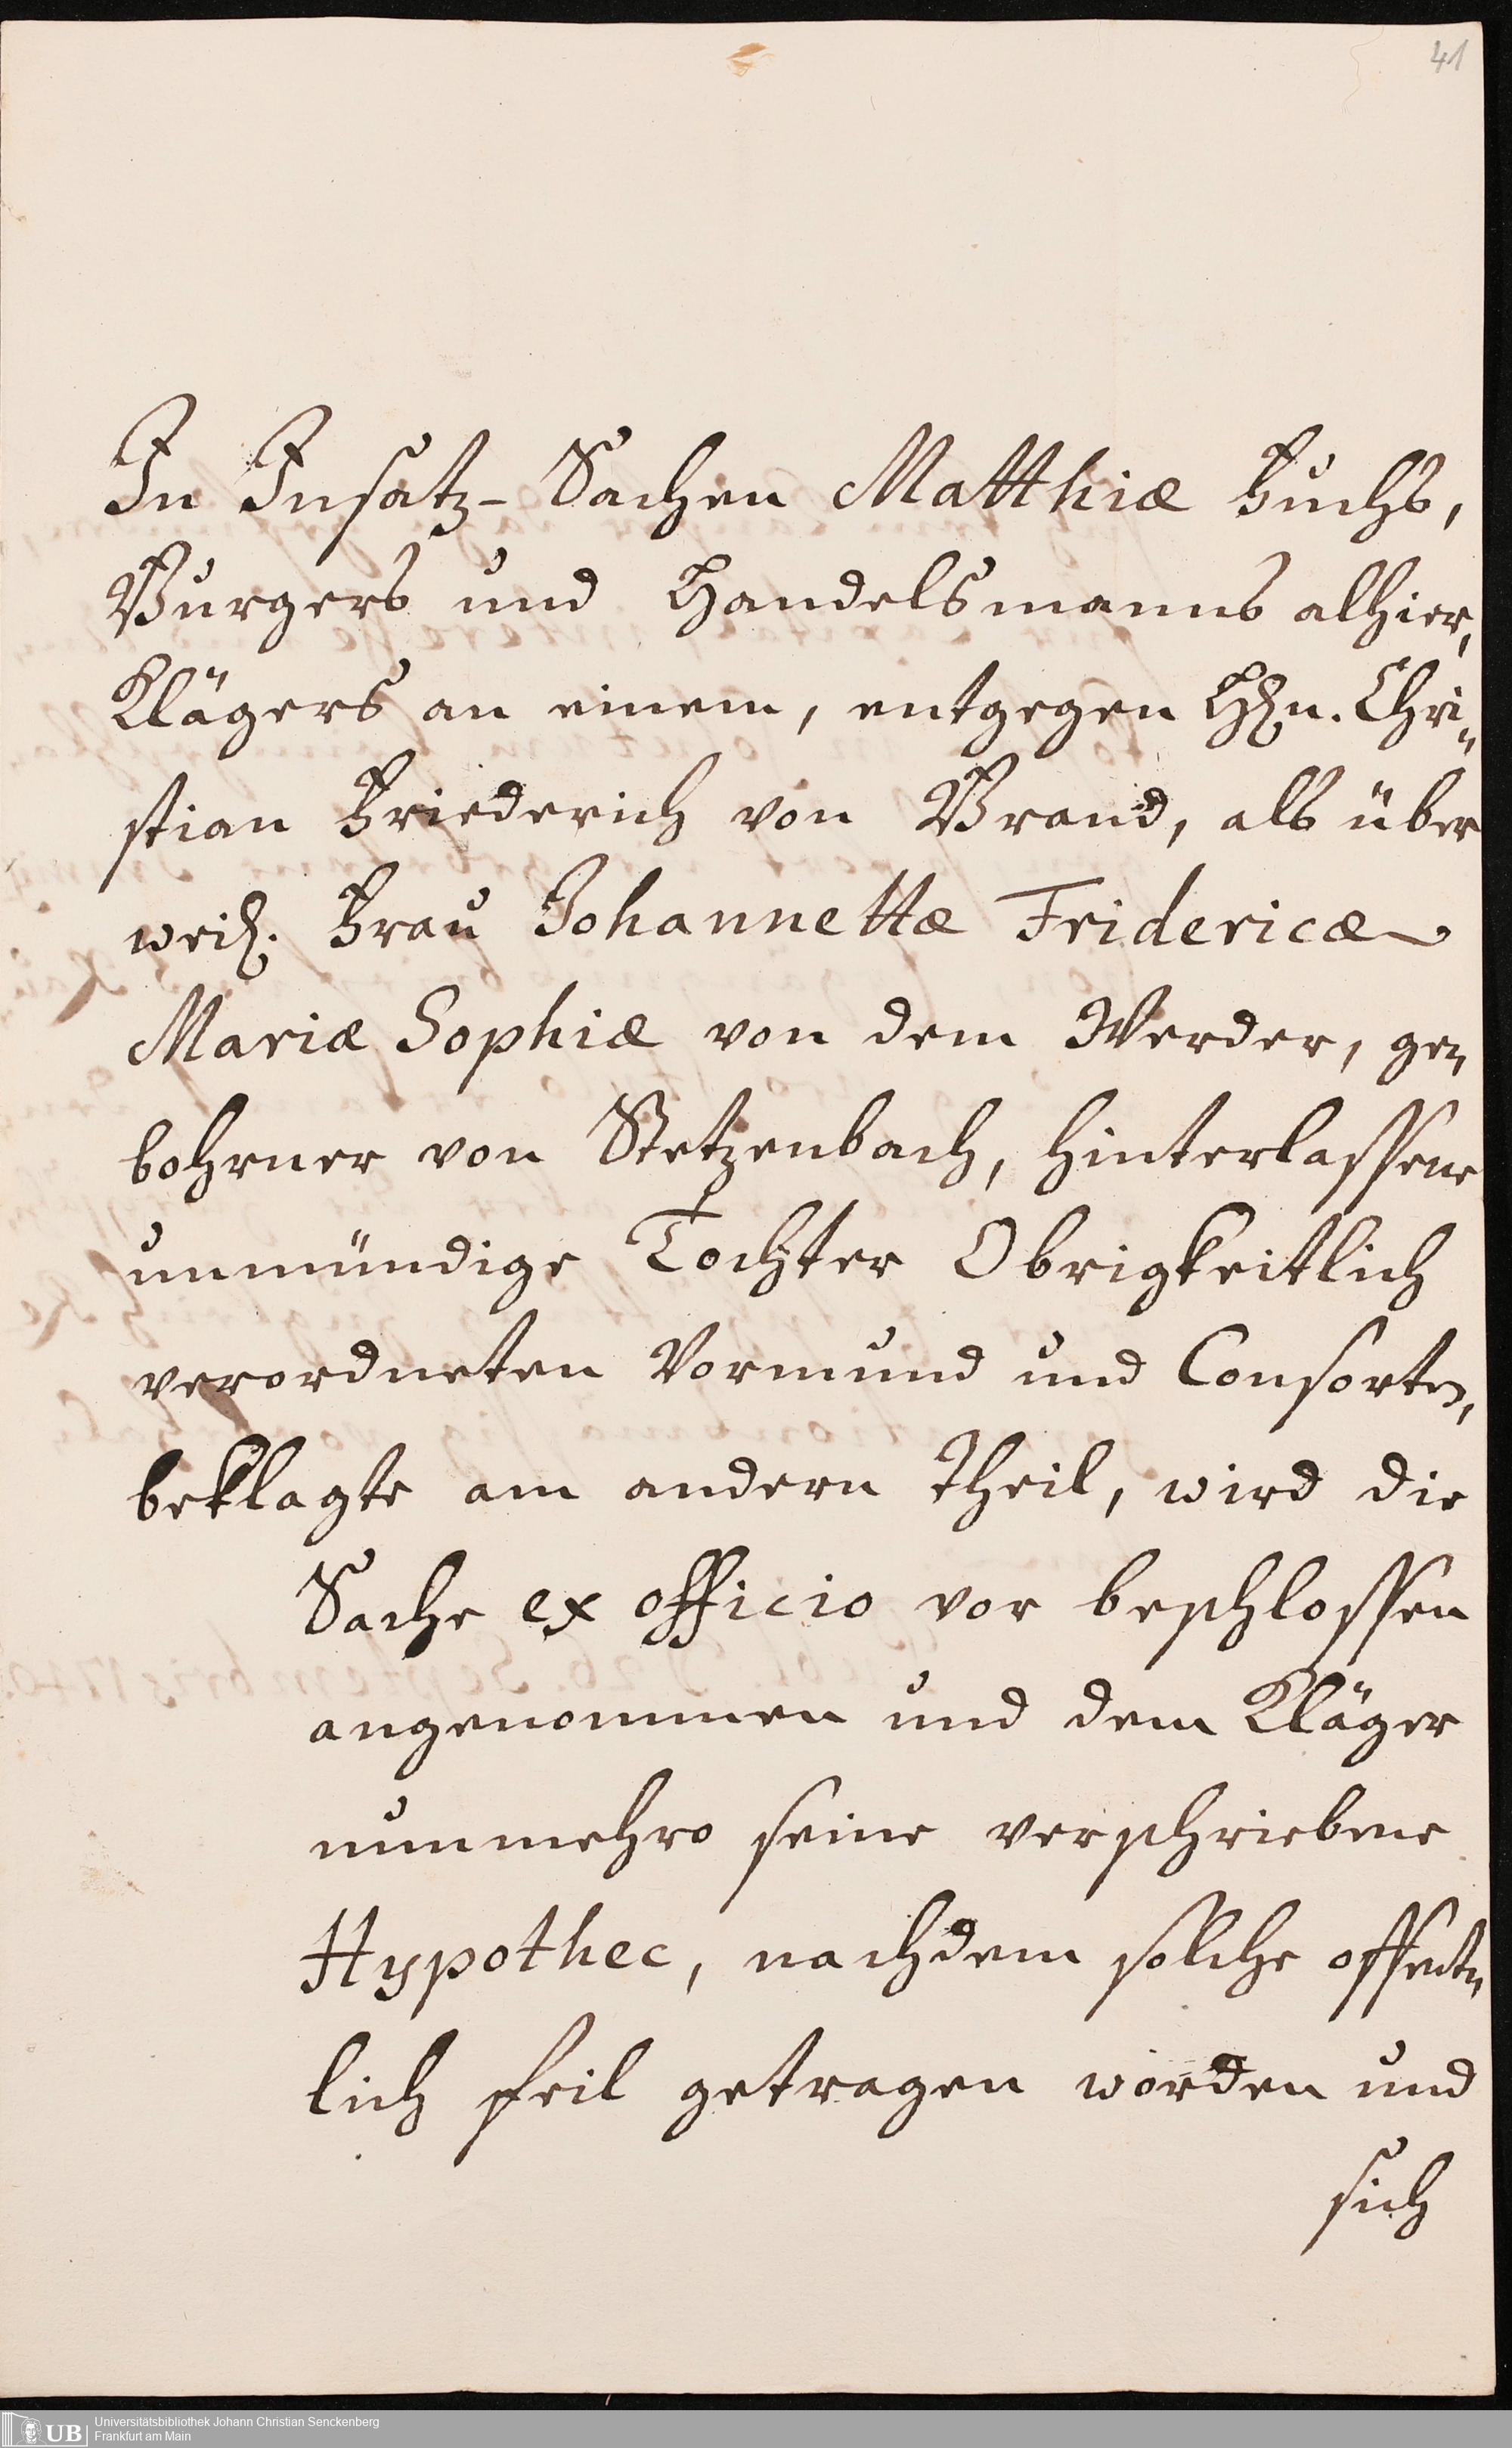 41
In Insatz-Sachen Matthiæ Fuchs,
Burgers und Handelsmanns alhier,
Klägers an einem, entgegen Hℓn. Chri„
stian Friederich von Brand, als über
weiℓ. Frau Johannettæ Fridericæ
Mariæ Sophiæ von dem Werder, ge„
bohrner von Stetzenbach, hinterlassene
unmündige Tochter Obrigkeitlich
verordneten Vormund und Consorten,
beklagte am andern Theil, wird die
Sache ex officio vor beschlossen
angenommen und dem Kläger
nunmehro seine verschriebene
Hypothec, nachdem solche offent„
lich feil getragen worden und
sich
UB
Universitätsbibliothek Johann Christian Senckenberg
Frankfurt am Main